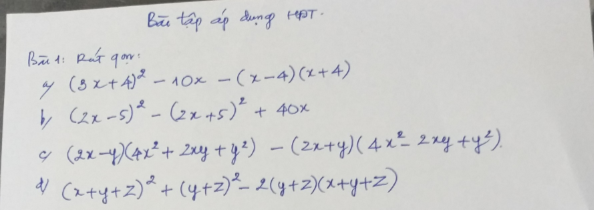 Bài tập áp dụng HĐT.
Bài 1: Rút gọn:
a, (3x+4)² - 10x - (x-4)(x+4)
b, (2x-5)² - (2x+5)² + 40x
c, (2x-y)(4x²+2xy+y²) - (2x+y)(4x²-2xy+y²).
d, (x+y+z)² + (y+z)² - 2(y+z)(x+y+z)